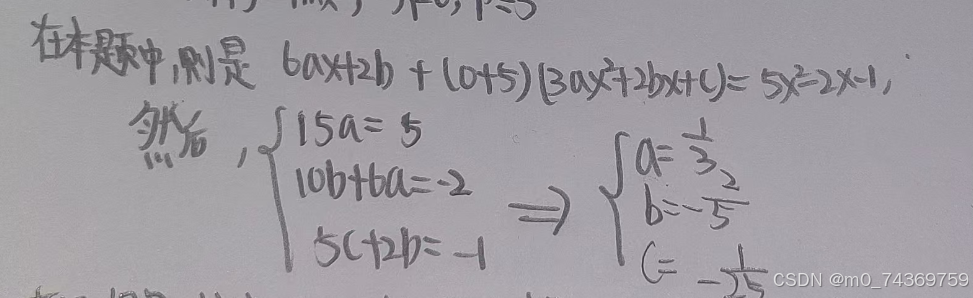 在本题中,则是 6ax+2b + (0+5)(3ax²+2bx+c)= 5x²-2x-1,
然后, { 15a= 5
10b+6a=-2
5c+2b= -1
⇒ { a= 1/3
b=-2/5
c= -1/25
CSDN @m0_74369759